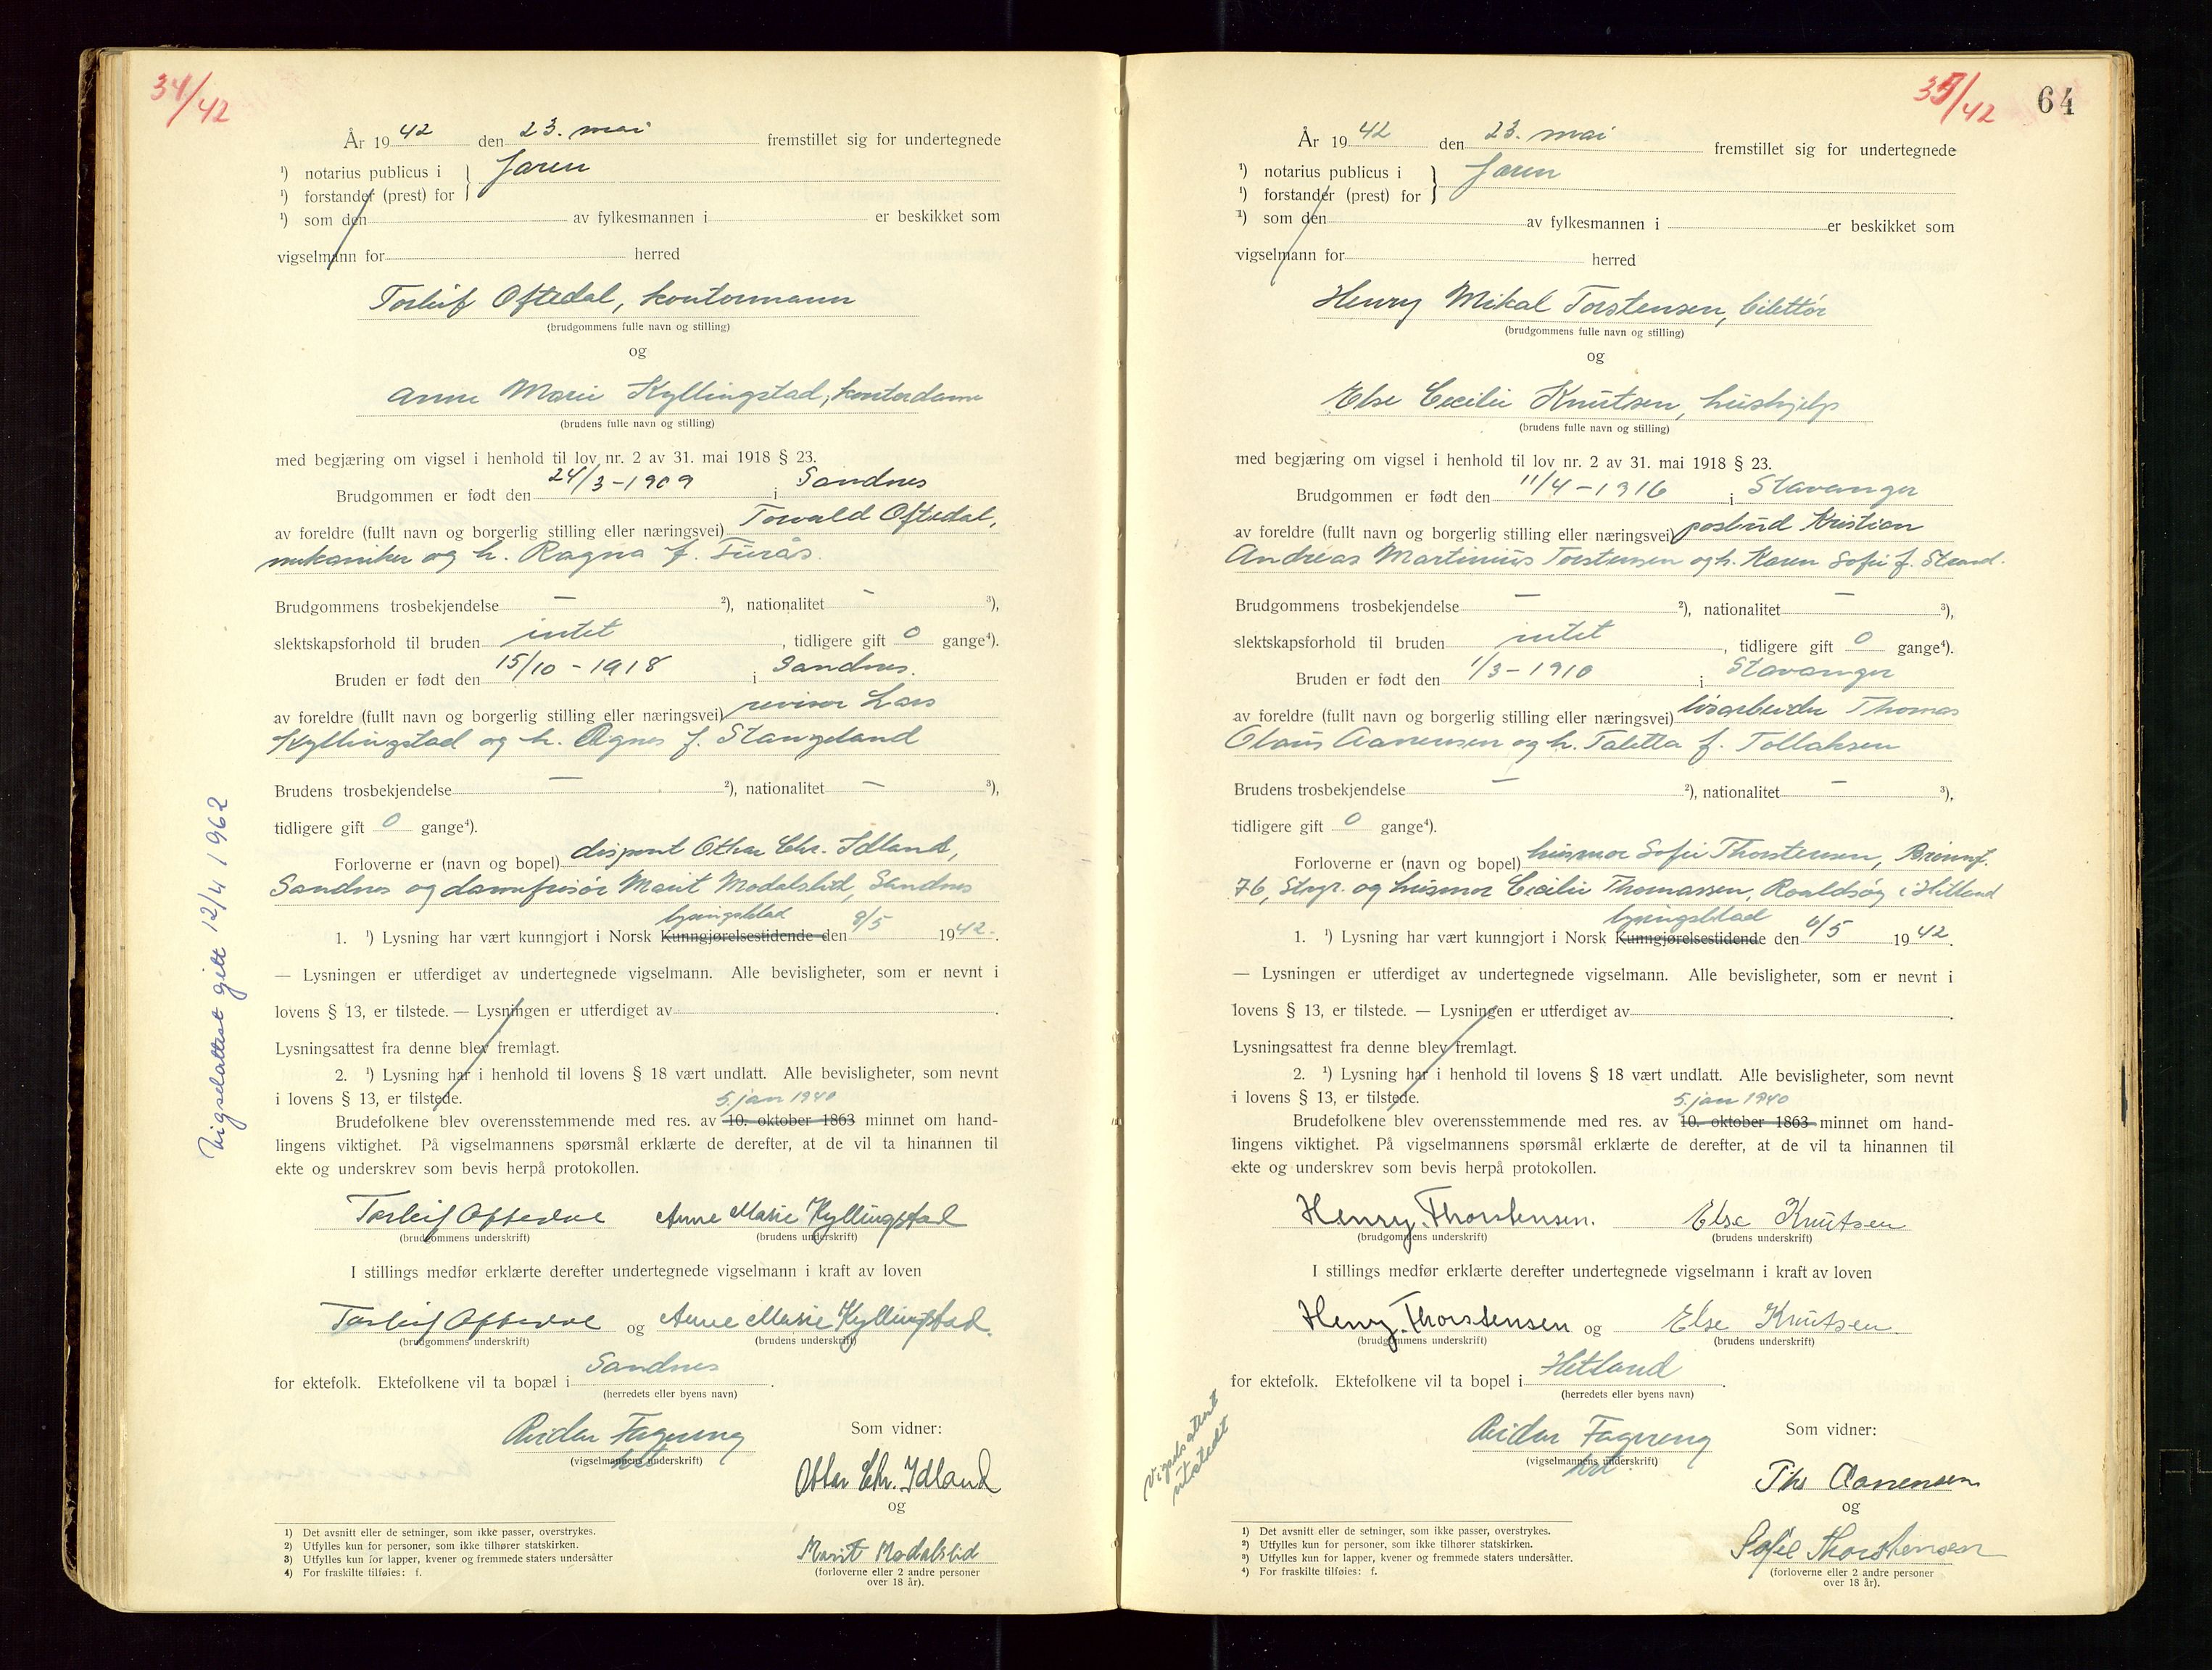 34/42
År 1942 den 23. mai fremstillet sig for undertegnede
¹) notarius publicus i } Jæren
¹) forstander (prest) for
¹) som den av fylkesmannen i er beskikket som
vigselmann for herred
Torleif Oftedal, kontormann
(brudgommens fulle navn og stilling)
og
Anne Marie Kyllingstad, kontordame
(brudens fulle navn og stilling)
med begjæring om vigsel i henhold til lov nr. 2 av 31. mai 1918 § 23.
Brudgommen er født den 24/3-1909 i Sandnes
av foreldre (fullt navn og borgerlig stilling eller næringsvei) Torvald Oftedal,
mekaniker og h. Ragna f. Furås.
Brudgommens trosbekjendelse — ²), nationalitet - ³),
slektskapsforhold til bruden intet, tidligere gift 0 gange⁴).
Bruden er født den 15/10-1918 i Sandnes.
av foreldre (fullt navn og borgerlig stilling eller næringsvei) revisor Lars
Kyllingstad og h. Agnes f. Stangeland
Brudens trosbekjendelse — ²), nationalitet — ³),
tidligere gift 0 gange⁴).
Forloverne er (navn og bopel) dispont Othar Chr. Idland,
Sandnes og damefrisør Marit Modalslid, Sandnes
lysingsblad
1. ¹) Lysning har vært kunngjort i Norsk Kunngjørelsestidende den 8/5 1942.
— Lysningen er utferdiget av undertegnede vigselmann. Alle bevisligheter, som er nevnt i
lovens § 13, er tilstede. — Lysningen er utferdiget av .
Lysningsattest fra denne blev fremlagt.
2. ¹) Lysning har i henhold til lovens § 18 vært undlatt. Alle bevisligheter, som nevnt
i lovens § 13, er tilstede.
5. jan 1940
Brudefolkene blev overensstemmende med res. av 10. oktober 1863 minnet om hand-
lingens viktighet. På vigselmannens spørsmål erklærte de derefter, at de vil ta hinannen til
ekte og underskrev som bevis herpå protokollen.
Torleif Oftedal Anne Marie Kyllingstad
(brudgommens underskrift) (brudens underskrift)
I stillings medfør erklærte derefter undertegnede vigselmann i kraft av loven
Torleif Oftedal og Anne Marie Kyllingstad.
(brudgommens underskrift) (brudens underskrift)
for ektefolk. Ektefolkene vil ta bopæl i Sandnes.
(herredets eller byens navn)
Reidar Fagereng
(vigselmannens underskrift)
Som vidner:
Othar Chr. Idland
og
Marit Modalslid
(forloverne eller 2 andre personer
over 18 år).
1) Det avsnitt eller de setninger, som ikke passer, overstrykes.
2) Utfylles kun for personer, som ikke tilhører statskirken.
3) Utfylles kun for lapper, kvener og fremmede staters undersåtter
4) For fraskilte tilføies: f.
Vigselattest gitt 12/4 1962
35/42 64
År 1942 den 23. mai fremstillet sig for undertegnede
¹) notarius publicus i } Jæren
¹) forstander (prest) for
¹) som den av fylkesmannen i er beskikket som
vigselmann for herred
Henry Mikal Torstensen, bilettør
(brudgommens fulle navn og stilling)
og
Else Cecilie Knutsen, hushjelp
(brudens fulle navn og stilling)
med begjæring om vigsel i henhold til lov nr. 2 av 31. mai 1918 § 23.
Brudgommen er født den 11/4-1916 i Stavanger
av foreldre (fullt navn og borgerlig stilling eller næringsvei) postbud Kristian
Andreas Martinius Torstensen og h. Karen Sofie f. Strand.
Brudgommens trosbekjendelse — ²), nationalitet — ³),
slektskapsforhold til bruden intet, tidligere gift 0 gange⁴).
Bruden er født den 1/3-1910 i Stavanger
av foreldre (fullt navn og borgerlig stilling eller næringsvei) løsarbeider Thomas
Olaus Aanensen og h. Taletta f. Tollaksen
Brudens trosbekjendelse — ²), nationalitet — ³),
tidligere gift 0 gange⁴).
Forloverne er (navn og bopel) husmor Sofie Thorstensen,
76, Stvgr. og husmor Cecilie Thomassen, Roaldsøy i Hetland
lysingsblad
1. ¹) Lysning har vært kunngjort i Norsk Kunngjørelsestidende den 6/5 1942.
— Lysningen er utferdiget av undertegnede vigselmann. Alle bevisligheter, som er nevnt i
lovens § 13, er tilstede. — Lysningen er utferdiget av .
Lysningsattest fra denne blev fremlagt.
2. ¹) Lysning har i henhold til lovens § 18 vært undlatt. Alle bevisligheter, som nevnt
i lovens § 13, er tilstede.
5. jan 1940
Brudefolkene blev overensstemmende med res. av 10. oktober 1863 minnet om hand-
lingens viktighet. På vigselmannens spørsmål erklærte de derefter, at de vil ta hinannen til
ekte og underskrev som bevis herpå protokollen.
Henry. Thorstensen. Else Knutsen
(brudgommens underskrift) (brudens underskrift)
I stillings medfør erklærte derefter undertegnede vigselmann i kraft av loven
Henry. Thorstensen og Else Knutsen.
(brudgommens underskrift) (brudens underskrift)
for ektefolk. Ektefolkene vil ta bopel i Hetland.
(herredets eller byens navn)
Reidar Fagereng
(vigselmannens underskrift)
Som vidner:
Ths Aanensen
og
Sofie Thorstensen
(forloverne eller 2 andre personer
over 18 år).
1) Det avsnitt eller de setninger, som ikke passer, overstrykes.
2) Utfylles kun for personer, som ikke tilhører statskirken.
3) Utfylles kun for lapper, kvener og fremmede staters undersåtter.
4) For fraskilte tilføies: f.
Vigselsattest
utstedt